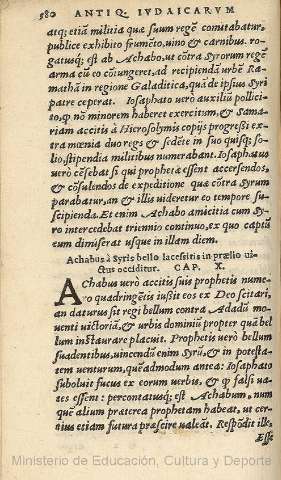 580 ANTIQ. IVDAICARVM
atq; etiā militia quæ suum regē comitabatur,
publice exhibito frumēto, uino & carnibus. ro-
gatusq; est ab Achabo, ut cōtra Syrorum regē
arma cū eo cōiungeret, ad recipiendā urbē Ra-
mathā in regione Galaditica, quā de ipsius Syri
pater ceperat. Iosaphato uerò auxiliū pollici-
to, q nō minorem haberet exercitum, & Sama-
riam accitis à Hierosolymis copijs progressi ex-
tra mœnia duo reges & sedēte in suo quisq; so-
lio, stipendia militibus numerabant. Iosaphatus
uerò cēsebat si qui prophetæ essent accersendos,
& cōsulendos de expeditione quæ cōtra Syrum
parabatur, an & illis uideretur eo tempore su-
scipienda. Et enim Achabo amicitia cum Sy-
ro intercedebat triennio continuo, ex quo captū
eum dimiserat usque in illam diem.
Achabus à Syris bello lacessitis in prælio ui-
ctus occiditur. CAP. X.
Achabus uerò accitis suis prophetis nume-
ro quadringētis iussit eos ex Deo scitari,
an daturus sit regi bellum contra Adadū mo-
uenti uictoriā, & urbis dominiū propter quā bel
lum instaurare placuit. Prophetis uerò bellum
suadentibus, uincendū enim Syrū, & in potesta-
tem uenturum, quēadmodum antea: Iosaphato
suboluit fucus ex eorum uerbis, & q falsi ua-
tes essent: percontatusq; est Achabum, num
quē alium præterea prophetam habeat, ut cer-
tius etiam futura præscire ualeāt. Respōdit ille,
Esse
Ministerio de Educación, Cultura y Deporte